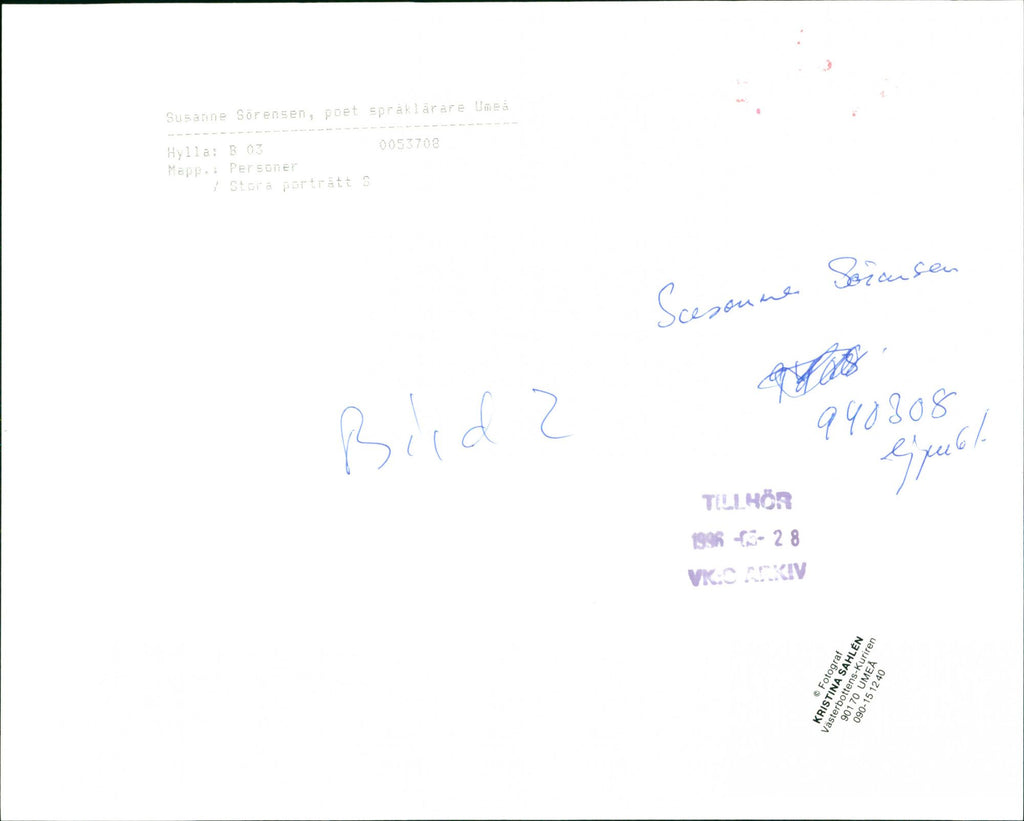 Susanne Sörensen, poet språklärare Umeå
----------------------------------------
Hylla: B 03 0053708
Mapp.: Personer
/ Stora porträtt S
Susanne Sörensen
940308
ej publ.
Bild 2
TILLHÖR
1996 -05- 28
VK:S ARKIV
© Fotograf
KRISTINA SAHLÉN
Västerbottens-Kuriren
901 70 UMEÅ
090-15 12 40